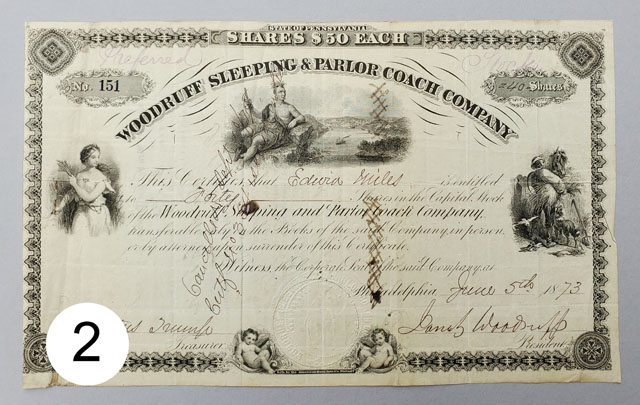 STATE OF PENNSYLVANIA
SHARES $50 EACH
Preferred Stock
No. 151
-240- Shares
WOODRUFF SLEEPING & PARLOR COACH COMPANY
This Certifies that Edwin Miles is entitled
to Shares in the Capital Stock
of the Woodruff Sleeping and Parlor Coach Company,
transferable on the Books of the said Company, in person,
or by attorney upon surrender of this Certificate.
Witness the Corporate Seal of the said Company at
Philadelphia, June 5th 1873
Trump
Treasurer
Woodruff
President
Cancelled
2